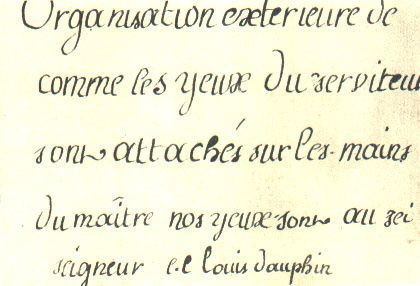 Organisation exterieure de
comme les yeux du serviteur
sont attachés sur les mains
du maître nos yeux sont au sei
seigneur e.e louis dauphin